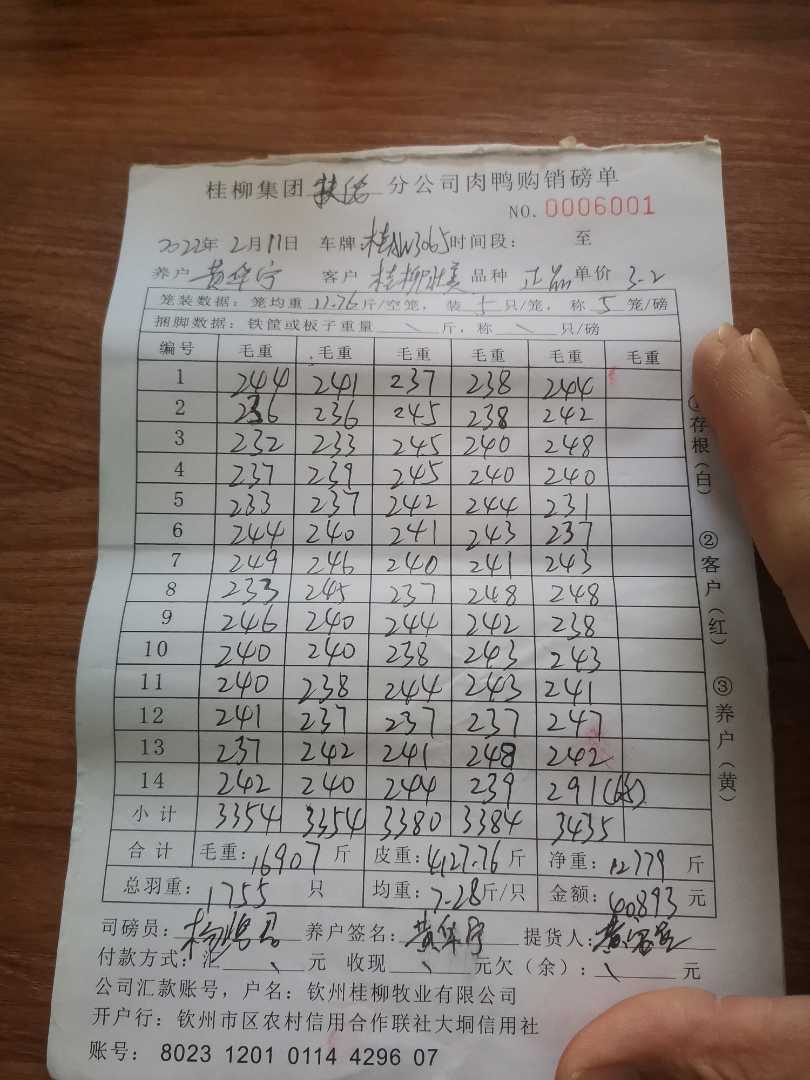 桂柳集团扶绥分公司肉鸭购销磅单
NO.0006001
2022年2月11日 车牌:桂AW3065时间段: 至
养户黄华宁 客户桂柳壮美品种 正品单价 3-2
笼装数据:笼均重11.76斤/空笼,装5只/笼,称5笼/磅
捆脚数据:铁筐或板子重量\斤,称\只/磅
编号 毛重 毛重 毛重 毛重 毛重 毛重
1 244 241 237 238 244
2 236 236 245 238 242
3 232 233 245 240 248
4 237 239 245 240 240
5 233 237 242 244 231
6 244 240 241 243 237
7 249 246 240 241 243
8 233 245 237 248 248
9 246 240 244 242 238
10 240 240 238 243 243
11 240 238 244 243 241
12 241 237 237 237 247
13 237 242 241 248 242
14 242 240 244 239 291(6.5)
小计 3354 3354 3380 3384 3435
合计 毛重:16907斤 皮重:4127.76斤 净重:12779斤
总羽重:1755只 均重:7.28斤/只 金额:40893元
司磅员: 养户签名:黄华宁 提货人:
付款方式:汇\元 收现\元欠(余):\元
公司汇款账号,户名:钦州桂柳牧业有限公司
开户行:钦州市区农村信用合作联社大垌信用社
账号:8023 1201 0114 4296 07
①存根(白) ②客户(红) ③养户(黄)